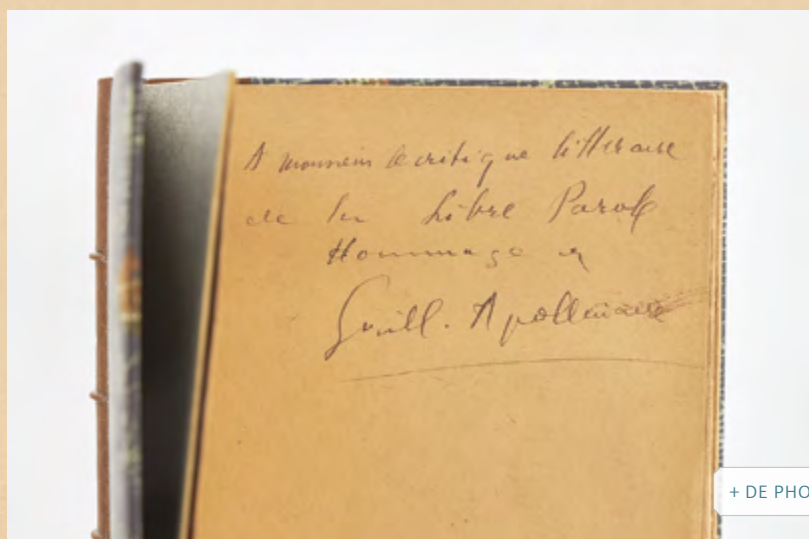 A monsieur le critique littéraire
de la Libre Parole
Hommage de
Guill. Apollinaire
+ DE PHO